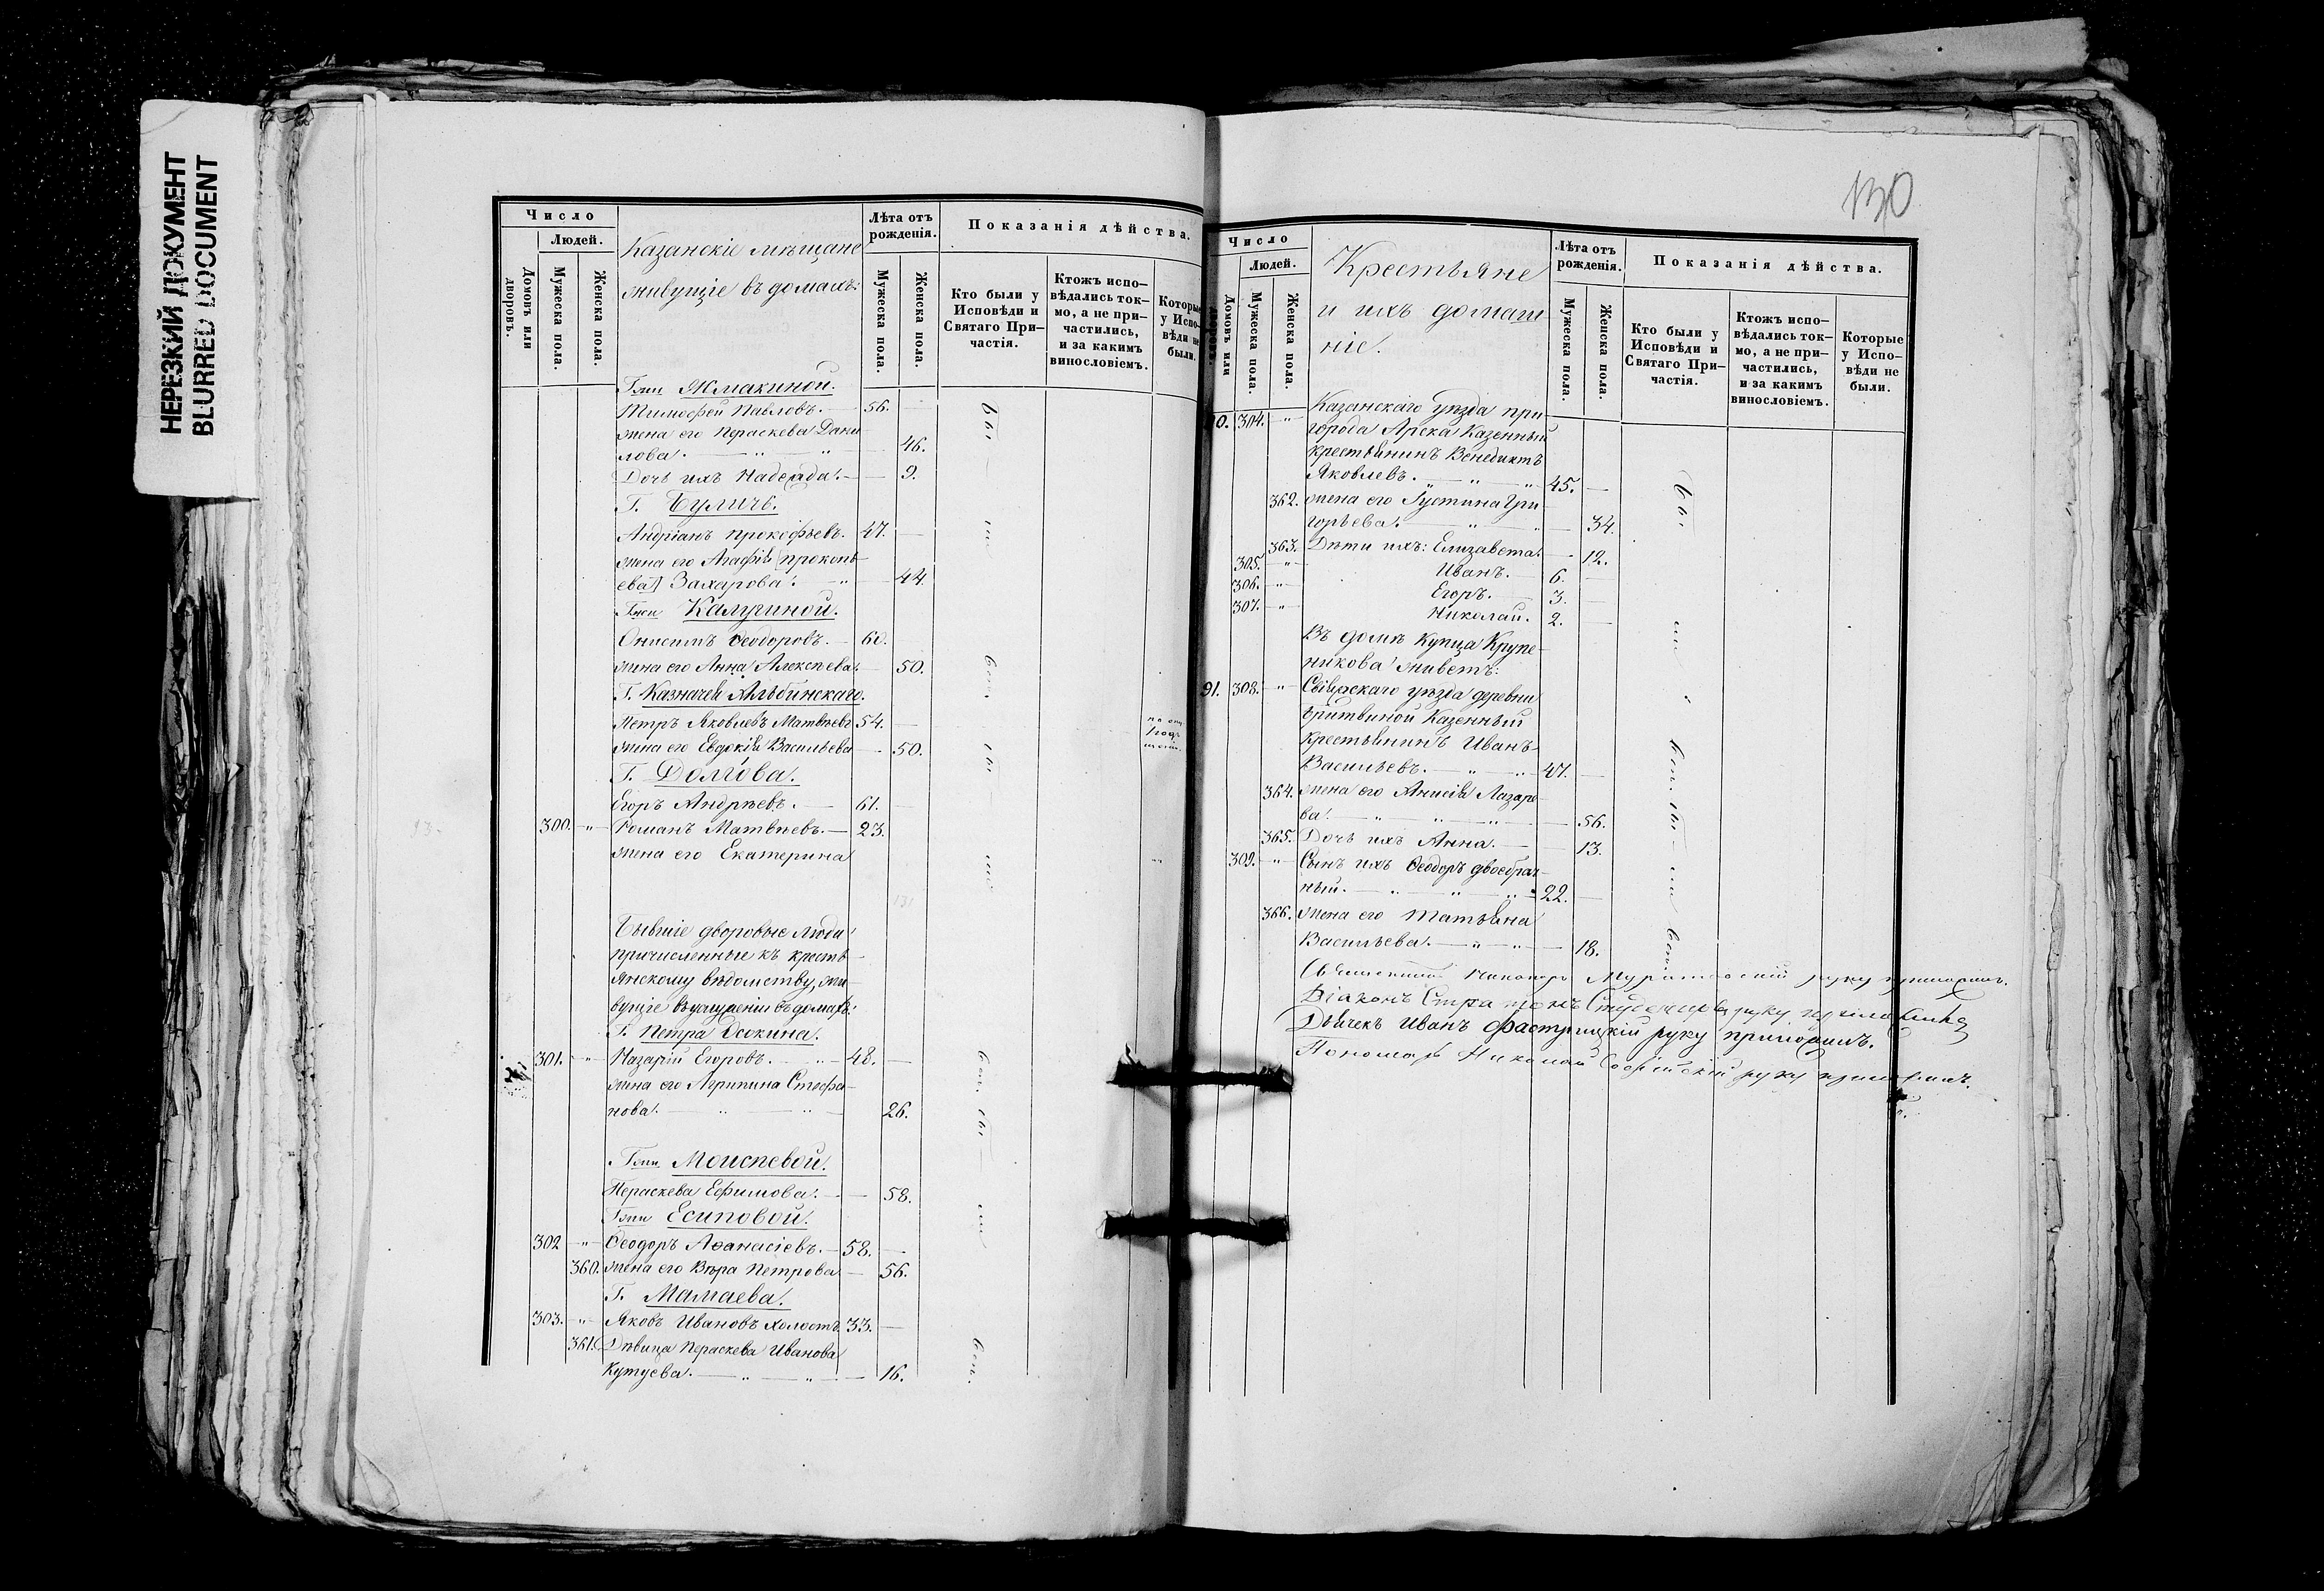 НЕРЕЗКИЙ ДОКУМЕНТ
BLURRED DOCUMENT
Число
Людей.
Домовъ или дворовъ.
Мужеска пола.
Женска пола.
Казанскіе мѣщане
живущіе въ домахъ:
Лѣта отъ рожденія.
Мужеска пола.
Женска пола.
Показанія дѣйства.
Кто были у Исповѣди и Святаго При-частія.
Ктожъ испо-вѣдались ток-мо, а не при-частились, и за какимъ винословіемъ.
Которые у Испо-вѣди не были.
Г-жи Жмакиной.
Тимофей Павловъ. 56. —
жена его Параскева Дани-
лова. — 46.
Дочь ихъ Надежда. — 9.
Г. Булича.
Андріанъ Прокофьевъ. 47. —
жена его Агафія [Прокопь-
ева] Захарова. — 44.
Г-жи Калугиной.
Онисимъ Ѳеодоровъ. — 60.
жена его Анна Алексѣева. — 50.
Г. Казначея
Петръ Яковлевъ Матвѣевъ 54. —
жена его Евдокія Васильева — 50.
Г. Долгова.
Егоръ Андрѣевъ. — 61. —
300. " Романъ Матвѣевъ. — 23.
жена его Екатерина
Бывшіе дворовые люди
причисленные къ кресть-
янскому вѣдомству, жи-
вущіе въ домахъ:
Г. Петра Осокина.
301. " Назарій Егоровъ. 48. —
жена его Агрипина Стефа-
нова. 26.
Г-жи Моисѣевой.
Параскева Ефимова. — 58.
Г-жи Есиповой.
302 " Ѳеодоръ Аѳанасіевъ. — 58. —
360. жена его Вѣра Петрова — 56.
Г. Мамаева.
303. " Яковъ Ивановъ холостъ 33. —
361. Дѣвица Параскева Иванова
Кутуева. — 16.
130
Число
Людей.
Домовъ или дворовъ.
Мужеска пола.
Женска пола.
Крестьяне
и ихъ домаш-
ніе.
Лѣта отъ рожденія.
Мужеска пола.
Женска пола.
Показанія дѣйства.
Кто были у Исповѣди и Святаго При-частія.
Ктожъ испо-вѣдались ток-мо, а не при-частились, и за какимъ винословіемъ.
Которые у Испо-вѣди не были.
90. 304. " Казанскаго уѣзда при-
города Арска Казенный
крестьянинъ Венедиктъ
Яковлевъ. 45. —
362. жена его Іустина Гри-
горьева. — 34.
363. Дѣти ихъ: Елизавета. — 12.
305. " Иванъ. — 6. —
306. " Егоръ. — 3. —
307. " Николай. 2. —
Въ домѣ Купца Крупе-
никова живетъ:
91. 308. " Свіяжскаго уѣзда деревни
Бритвиной Казенный
крестьянинъ Иванъ
Васильевъ. — 47. —
364. жена его Анисія Лазаре-
ва. — 56.
365. Дочь ихъ Анна. — 13.
309. " Сынъ ихъ Ѳеодоръ двоебрач-
ный. — 22. —
366. жена его Татьяна
Васильева. — 18.
руку приложилъ.
Діаконъ руку приложилъ
Дьячекъ Иванъ руку приложилъ.
Пономарь Николай руку приложилъ.